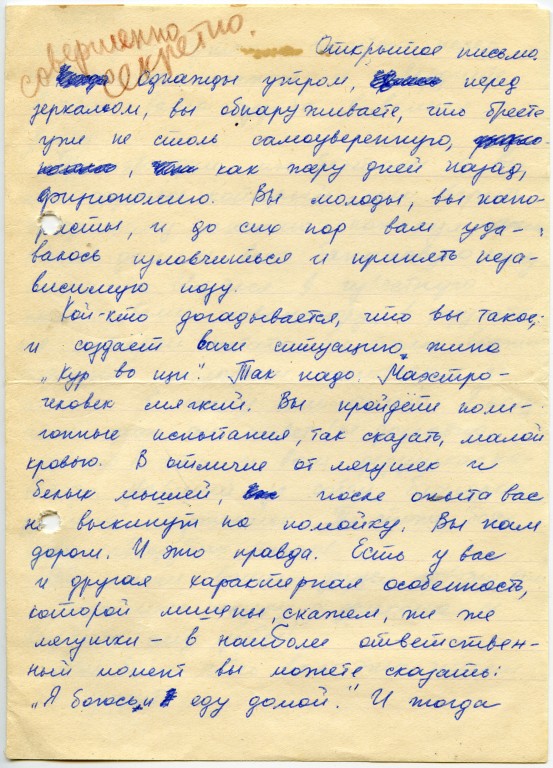 совершенно
секретно.
Открытое письмо.
Однажды утром, перед
зеркалом, вы обнаруживаете, что бреете
уже не столь самоуверенную,
, как пару дней назад,
физиономию. Вы молоды, вы напо-
ристы, и до сих пор вам уда-
валось изловчиться и принять неза-
висимую позу.
Кой-кто догадывается, что вы такое,
и создаёт вам ситуацию типа
„Кур во щи". Так надо. Маэстро-
человек мягкий. Вы пройдёте поли-
гонные испытания, так сказать, малой
кровью. В отличие от лягушек и
белых мышей, после опыта вас
не выкинут на помойку. Вы нам
дороги. И это правда. Есть у вас
и другая характерная особенность,
которой лишены, скажем, те же
лягушки – в наиболее ответствен-
ный момент вы можете сказать:
„Я боюсь, и еду домой." И тогда